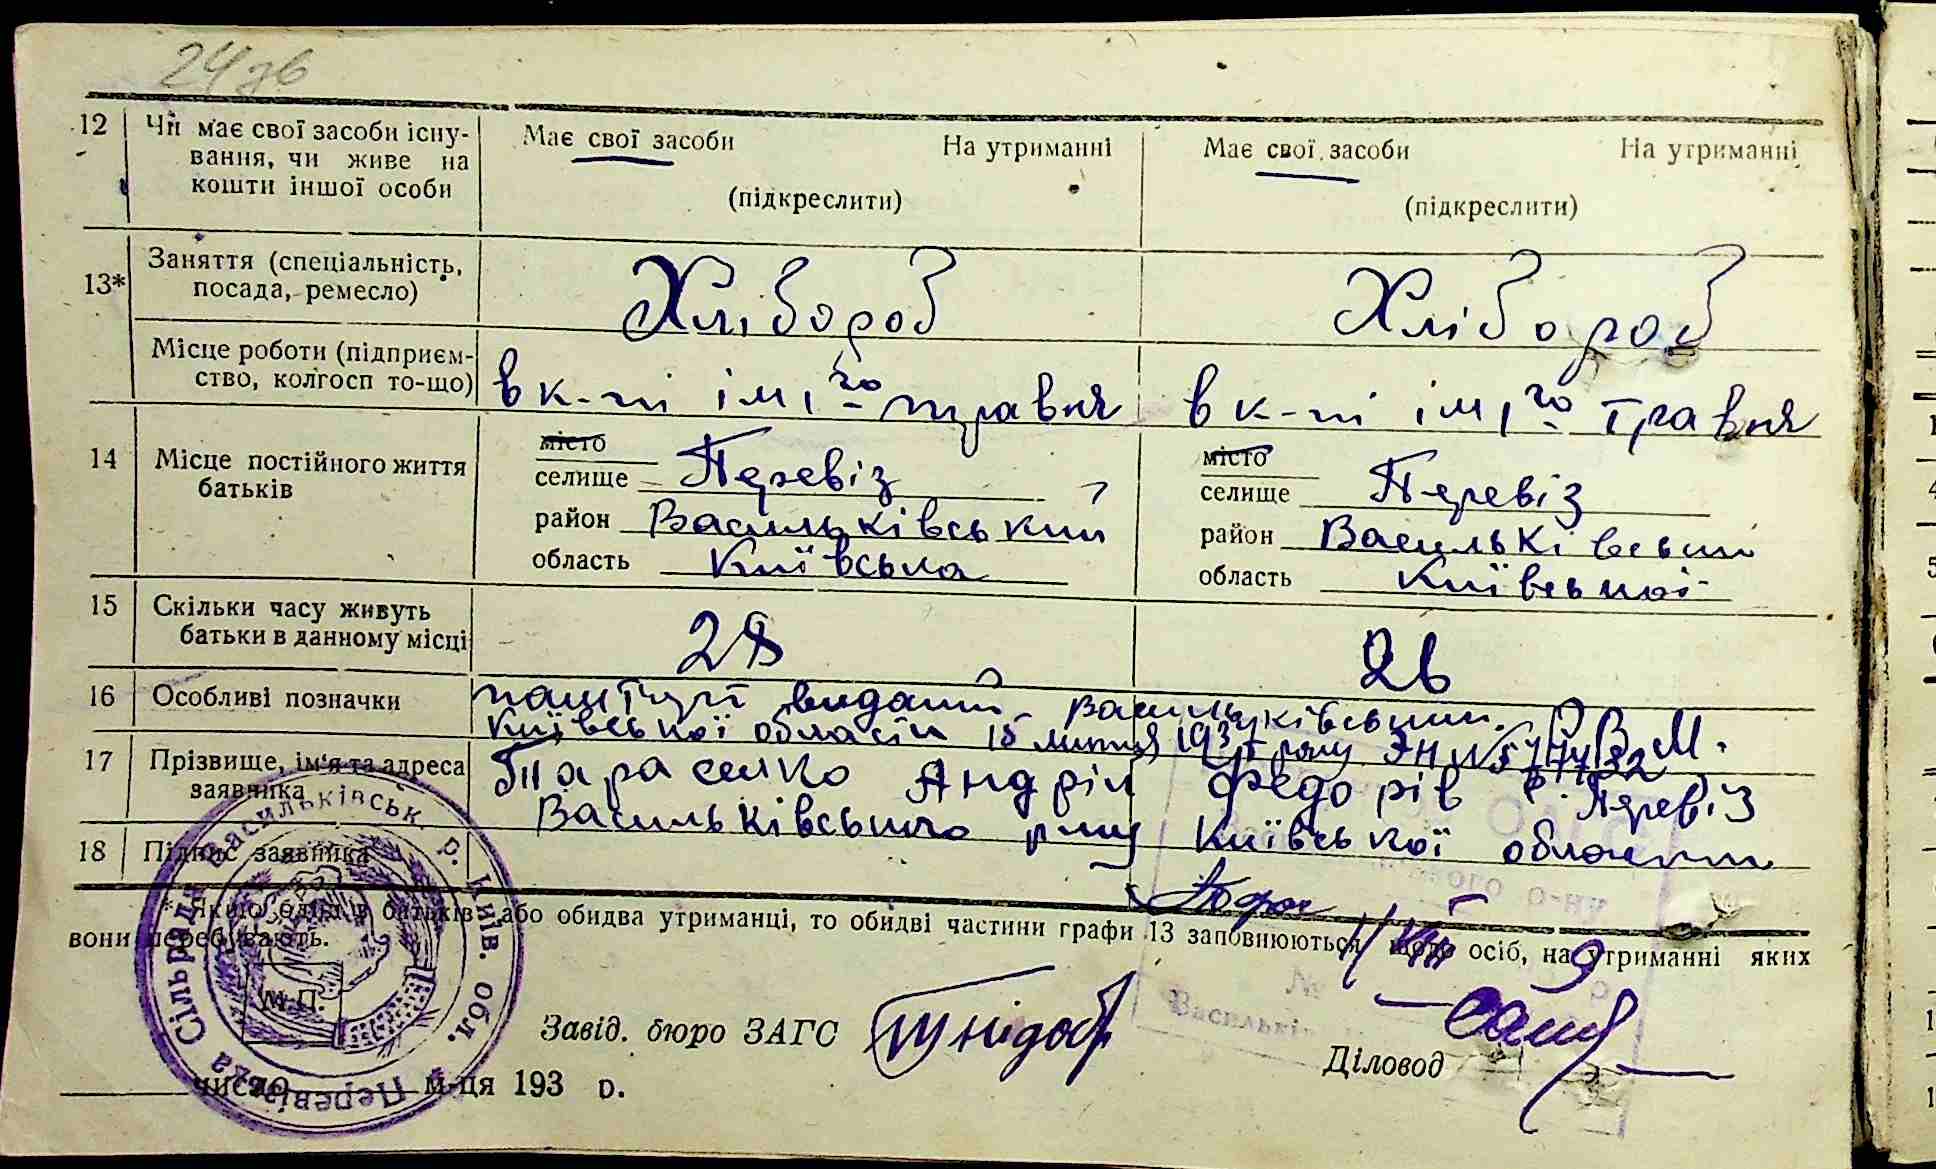 24зв
12 Чи має свої засоби існу- Має свої засоби На утриманні Має свої засоби На утриманні
вання, чи живе на
кошти іншої особи (підкреслити) (підкреслити)
13* Заняття (спеціальність, Хлібороб Хлібороб
посада, ремесло)
Місце роботи (підприєм- в к-пі ім 1го травня в к-пі ім 1го травня
ство, колгосп то-що)
14 Місце постійного життя місто місто
батьків селище Перевіз селище Перевіз
район Васильківський район Васильківський
область Київська область Київської
15 Скільки часу живуть 28 26
батьки в данному місці
16 Особливі позначки пашпорт виданий Васильківським Р.В.М.
Київської області 15 липня 193 року ЭН №
17 Прізвище, ім'я та адреса Тараселко Андрій Федорів с. Перевіз
заявника Васильківського р-ну Київської області
18 Підпис заявника
* Якщо один з батьків або обидва утриманці, то обидві частини графи 13 заповнюються щодо осіб, на утриманні яких
вони перебувають.
М.П.
Завід. бюро ЗАГС Діловод
число м-ця 193 р.
Перевізька Сільрада Васильківськ. р. Київ. обл.